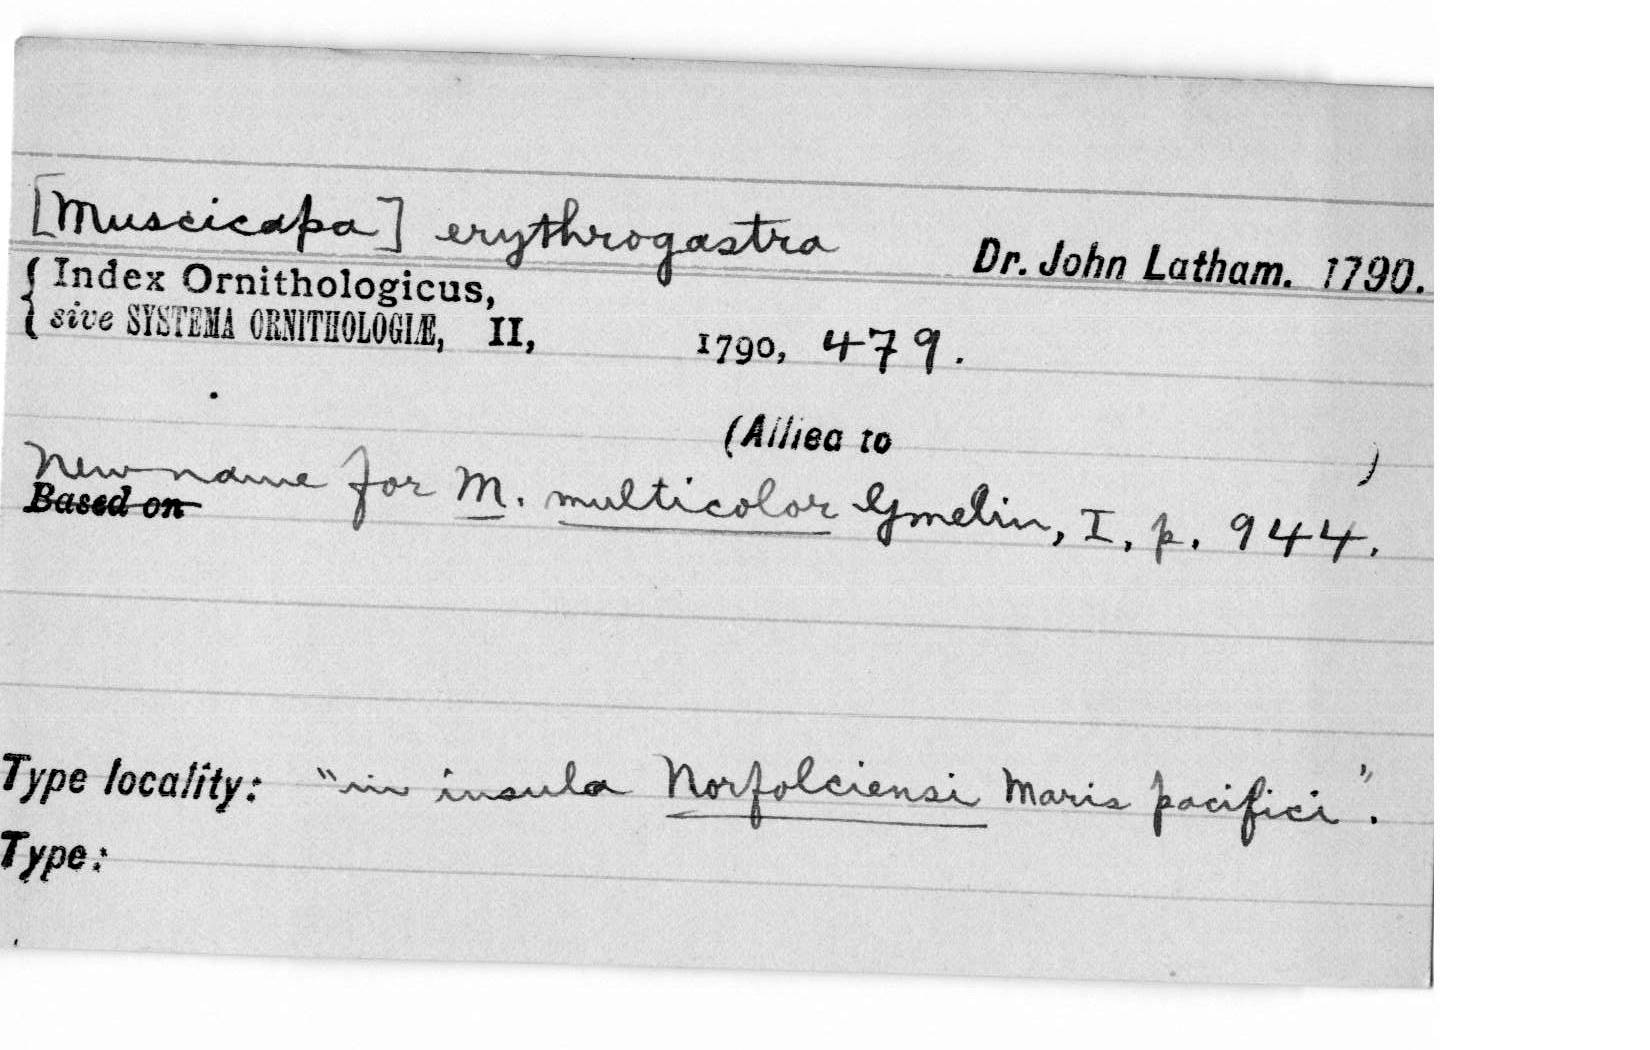 [Muscicapa] erythrogastra
Dr. John Latham. 1790.
{ Index Ornithologicus,
sive SYSTEMA ORNITHOLOGIÆ, II, 1790, 479.
(Allied to )
New name for M. multicolor Gmelin, I, p. 944.
Based on
Type locality: "in insula Norfolciensi Maris pacifici".
Type: